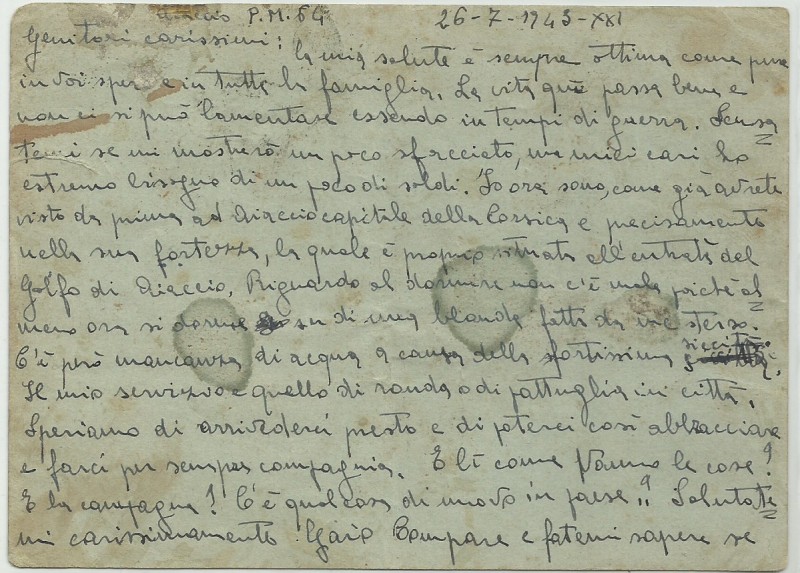 P.M. 64 26-7-1943-XXI
Genitori carissimi; la mia salute è sempre ottima come pure
in voi spero e in tutta la famiglia. La vita quì passa bene e
non ci si può lamentare essendo in tempi di guerra. Scusa
temi se mi mostrerò un poco sfacciato, ma miei cari ho
estremo bisogno di un poco di soldi. Io ora sono, come già avrete
visto da prima ad Aiaccio capitale della Corsica e precisamente
nella sua fortezza, la quale è proprio situata all'entrata del
Golfo di Aiaccio. Riguardo al dormire non c'è male poichè al
meno ora si dorme su di una blanda fatta da me stesso.
C'è però mancanza di acqua a causa della fortissima siccità.
Il mio servizio è quello di ronda o di pattuglia in città.
Speriamo di arrivederci presto e di poterci così abbracciare
e farci per sempre compagnia. E lì come vanno le cose?
E la campagna? C'è qualcosa di nuovo in paese? Salutate
mi carissimamente Compare e fatemi sapere se